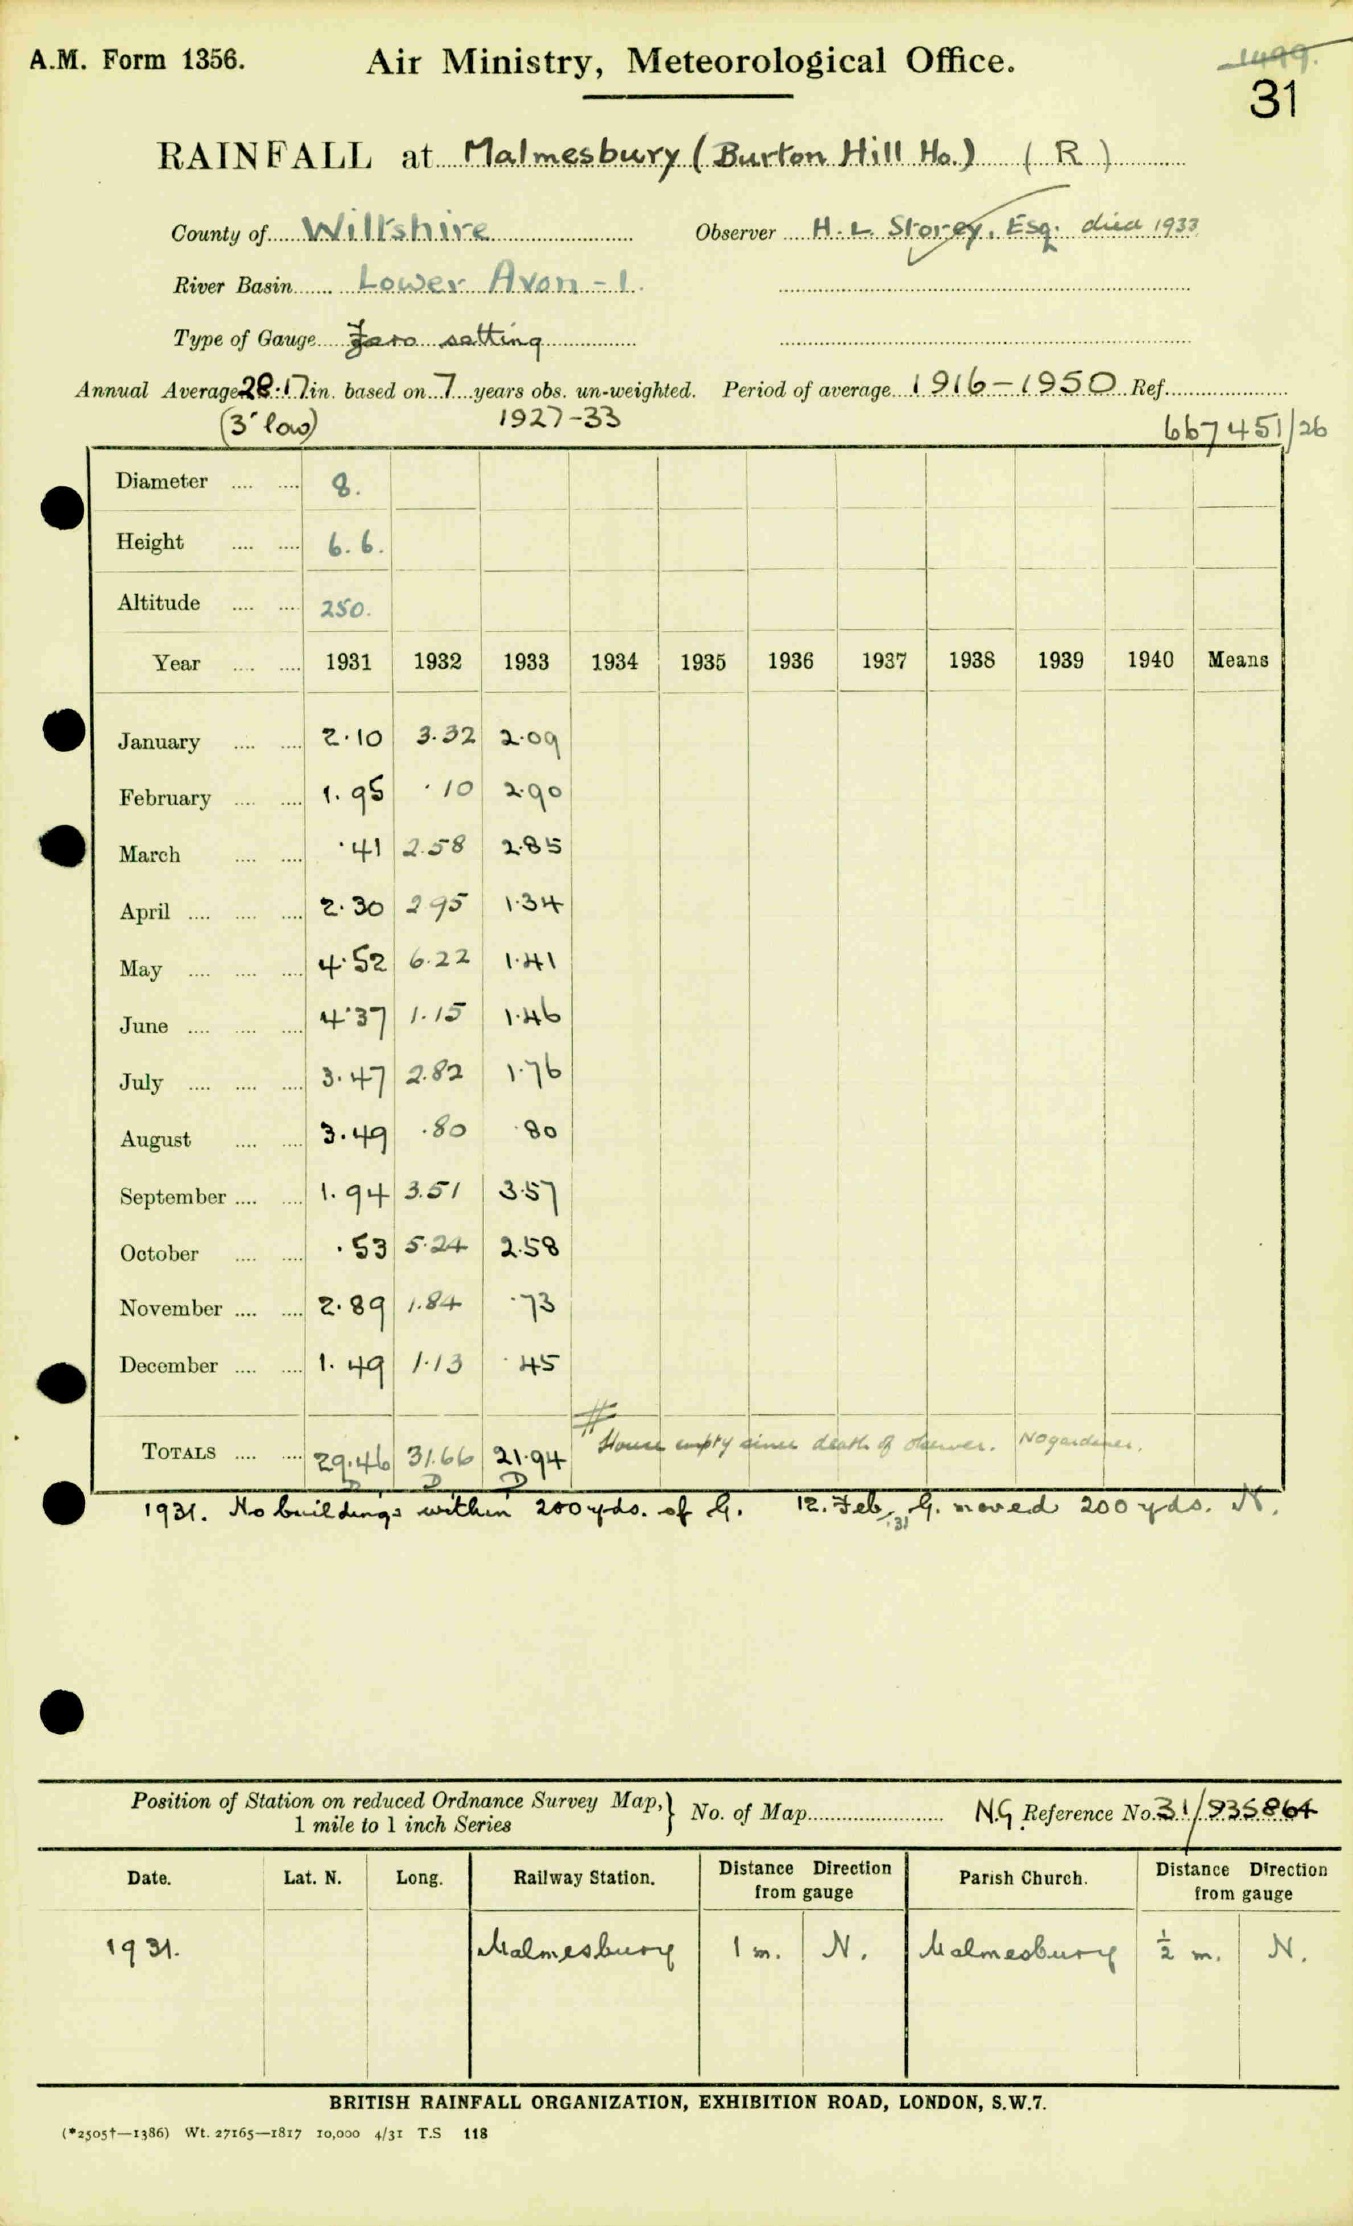 A.M. Form 1356. Air Ministry, Meteorological Office. 1499.
31
RAINFALL at Malmesbury (Burton Hill Ho.) (R)
County of Wiltshire Observer H. L. Storey, Esq. died 1933
River Basin Lower Avon - 1.
Type of Gauge Zero setting
Annual Average 28.17 in. based on 7 years obs. un-weighted. Period of average 1916-1950 Ref.
(3" low) 1927-33 667451/26
Diameter 8.
Height 6.6.
Altitude 250.
Year 1931 1932 1933 1934 1935 1936 1937 1938 1939 1940 Means
January 2.10 3.32 2.09
February 1.95 .10 2.90
March .41 2.58 2.85
April 2.30 2 95 1.34
May 4.52 6.22 1.41
June 4.37 1.15 1.46
July 3.47 2.82 1.76
August 3.49 .80 .80
September 1.94 3.51 3.57
October .53 5.24 2.58
November 2.89 1.84 .73
December 1.49 1.13 .45
House empty since death of observer. No gardener.
TOTALS 29.46 31.66 21.94
D D D
1931. No buildings within 200 yds. of G. 12. Feb. 31 G. moved 200 yds. N.
Position of Station on reduced Ordnance Survey Map, } No. of Map N.G. Reference No. 31/935864
1 mile to 1 inch Series
Date. Lat. N. Long. Railway Station. Distance Direction from gauge Parish Church. Distance Direction from gauge
1931. Malmesbury 1 m. N. Malmesbury ½ m. N.
BRITISH RAINFALL ORGANIZATION, EXHIBITION ROAD, LONDON, S.W.7.
(*2505†—1386) Wt. 27165—1817 10,000 4/31 T.S 118